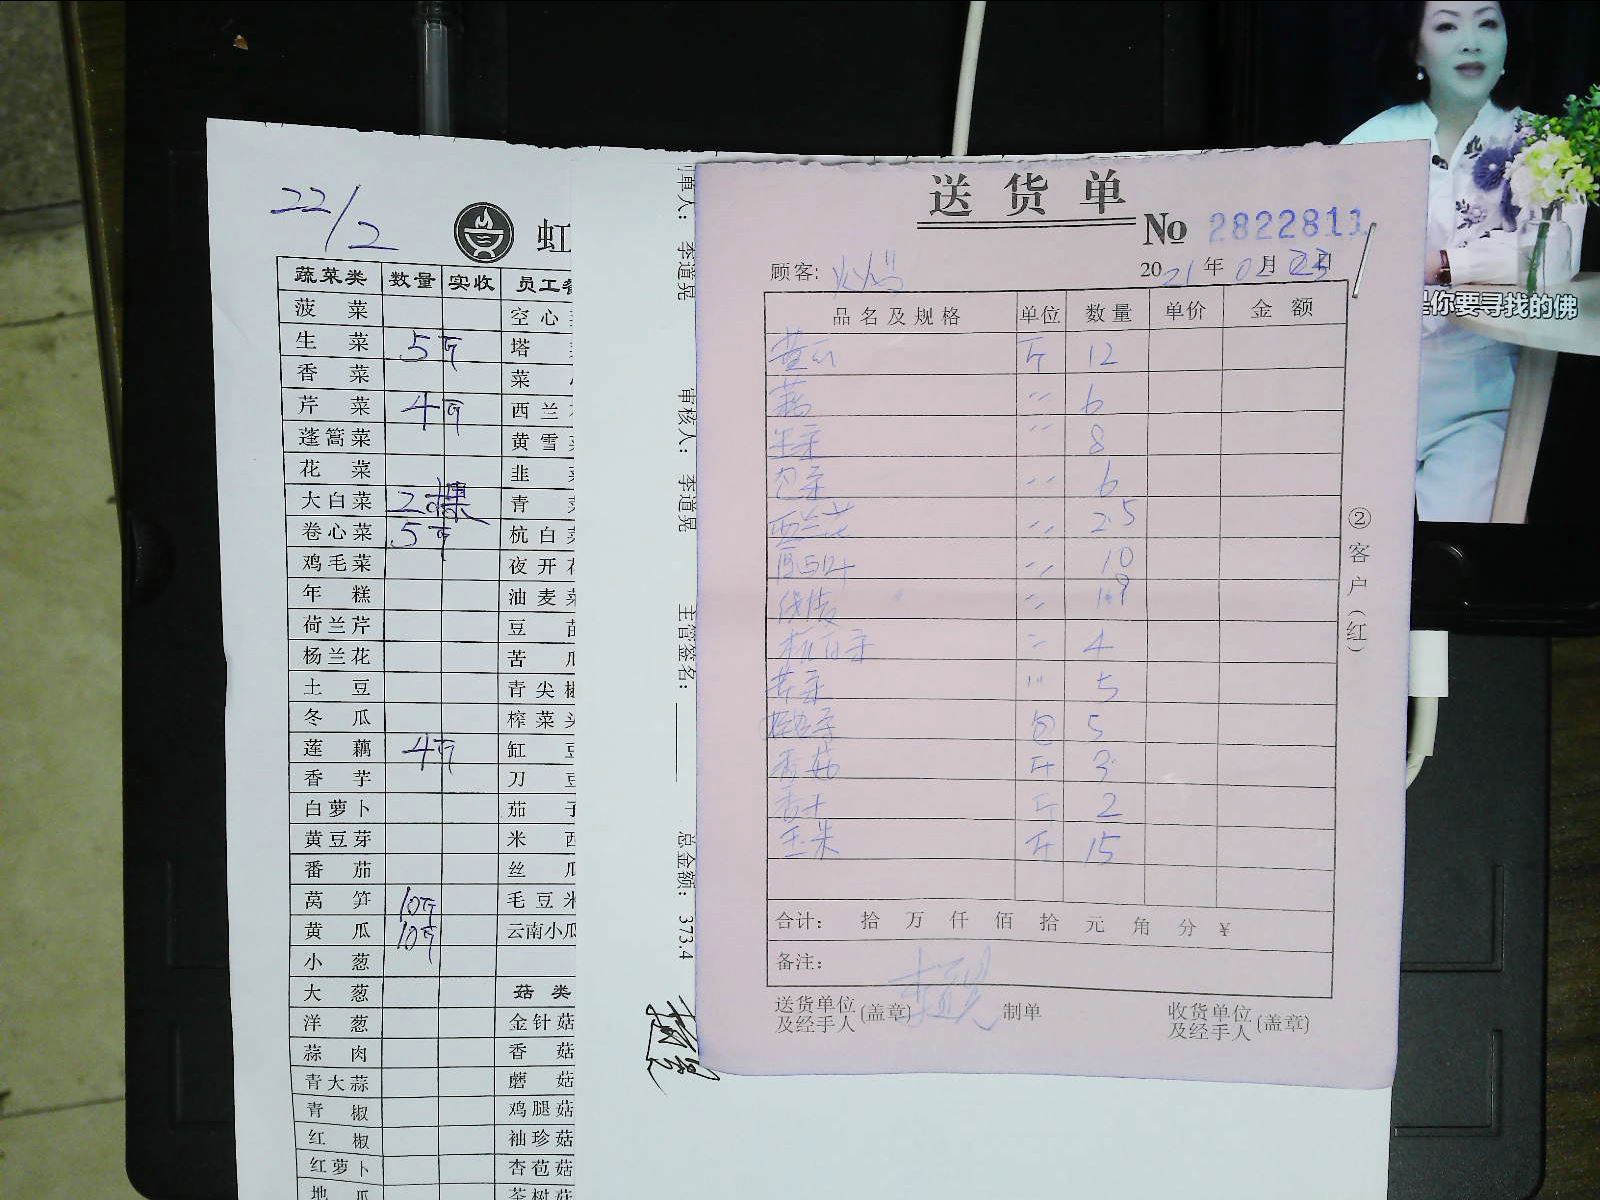 22/2
虹
蔬菜类 数量 实收 员工
菠菜 空心
生菜 5斤 塔
香菜 菜
芹菜 4斤 西兰
蓬篙菜 黄雪
花菜 韭
大白菜 2棵 青
卷心菜 5斤 杭白
鸡毛菜 夜开
年糕 油麦
荷兰芹 豆
杨兰花 苦
土豆 青尖
冬瓜 榨菜
莲藕 4斤 缸
香芋 刀
白萝卜 茄
黄豆芽 米
番茄 丝
莴笋 10斤 毛豆
黄瓜 10斤 云南小瓜
小葱
大葱 菇类
洋葱 金针菇
蒜肉 香菇
青大蒜 蘑菇
青椒 鸡腿菇
红椒 袖珍菇
红萝卜 杏苞菇
地瓜 茶树菇
单人: 李道晃
审核人: 李道晃
主管签名:
总金额: 373.4
送货单
No 2822811
顾客:
2021年02月23日
品名及规格 单位 数量 单价 金额
黄瓜 斤 12
藕 〃 6
生菜 〃 8
包菜 〃 6
西兰花 〃 2.5
〃 10
〃
杭白菜 〃 4
〃 5
包 5
香菇 斤 3
香干 斤 2
玉米 斤 15
合计: 拾 万 仟 佰 拾 元 角 分 ¥
备注:
送货单位及经手人(盖章) 制单 收货单位及经手人(盖章)
②客户(红)
是你要寻找的佛